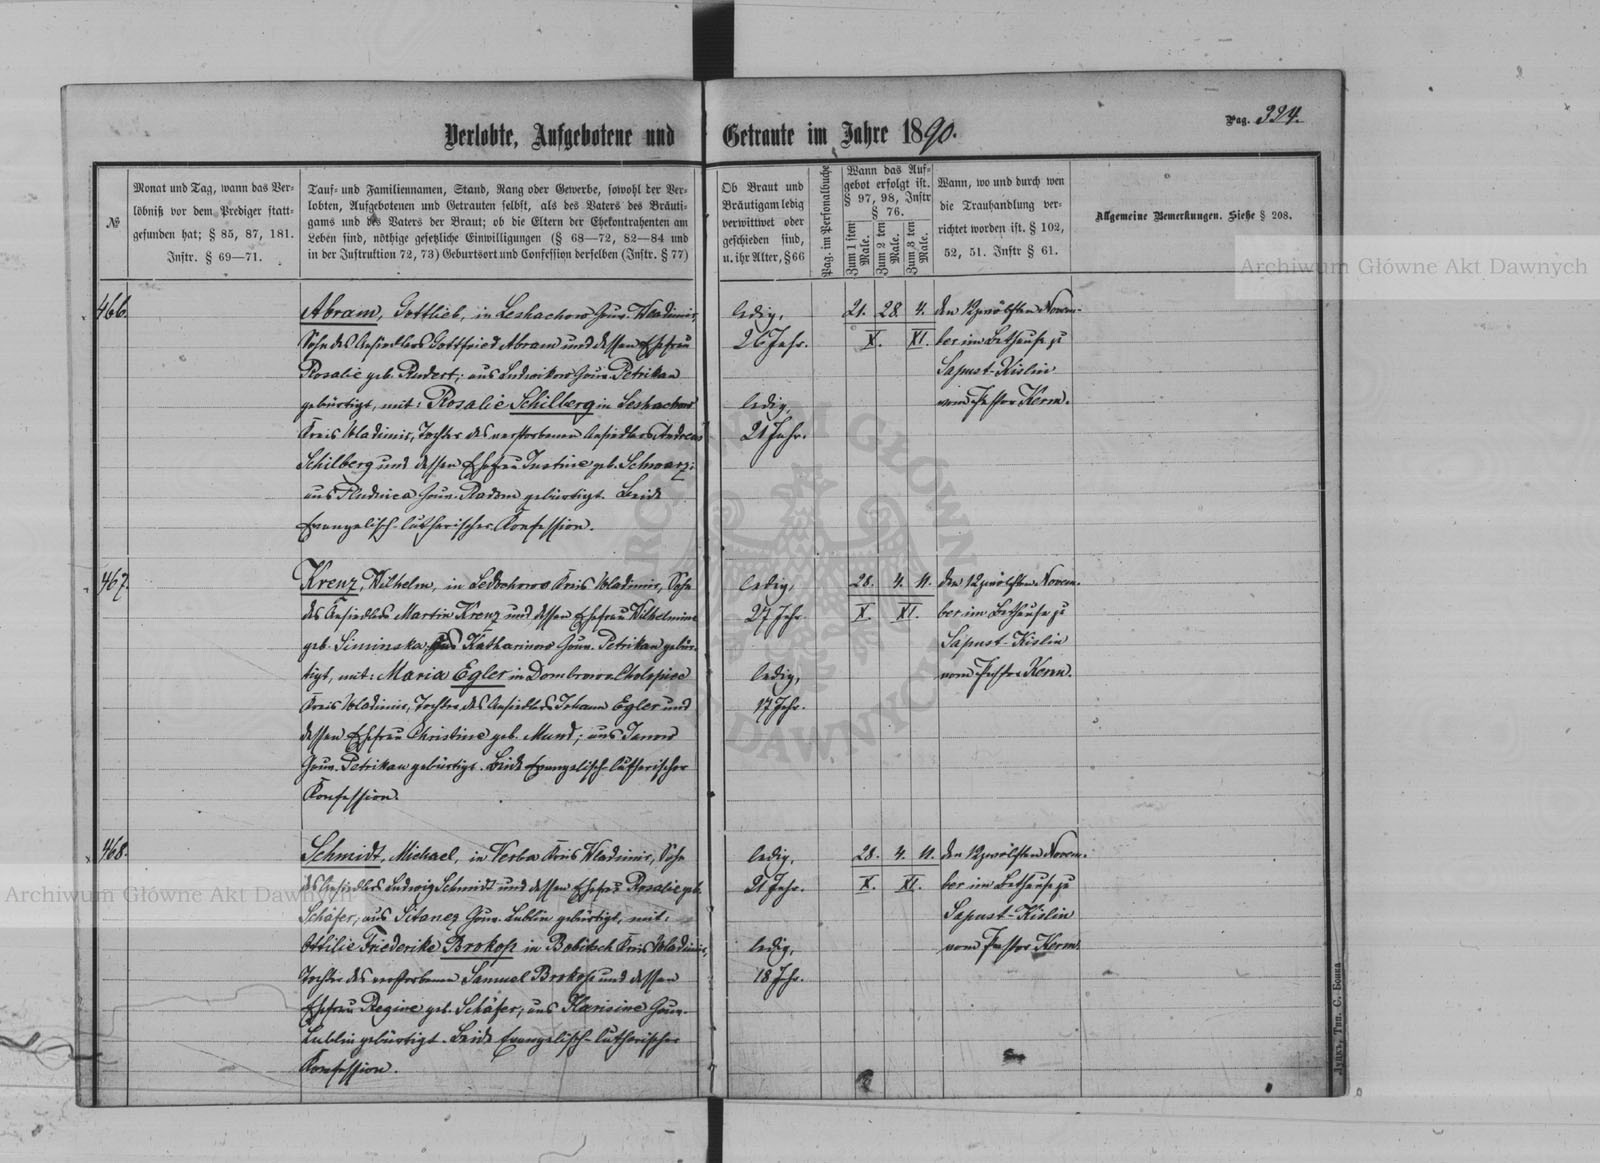 Verlobte, Aufgebotene und Getraute im Jahre 1890.
Pag. 324.
№
Monat und Tag, wann das Ver-
löbniß vor dem Prediger statt-
gefunden hat; § 85, 87, 181.
Instr. § 69—71.
Tauf- und Familiennamen, Stand, Rang oder Gewerbe, sowohl der Ver-
lobten, Aufgebotenen und Getrauten selbst, als des Vaters des Bräuti-
gams und des Vaters der Braut; ob die Eltern der Ehekontrahenten am
Leben sind, nöthige gesetzliche Einwilligungen (§ 68—72, 82—84 und
in der Instruktion 72, 73) Geburtsort und Confession derselben (Instr. § 77)
Ob Braut und
Bräutigam ledig
verwittwet oder
geschieden sind,
u. ihr Alter, § 66
Pag. im Personalbuche
Wann das Auf-
gebot erfolgt ist.
§ 97, 98, Instr
§ 76.
Zum 1 sten Male.
Zum 2 ten Male.
Zum 3 ten Male.
Wann, wo und durch wen
die Trauhandlung ver-
richtet worden ist. § 102,
52, 51. Instr § 61.
Allgemeine Bemerkungen. Siehe § 208.
466.
Abram, Gottlieb, in Leshachow Gouv. Wladimir,
Sohn des Ansiedlers Gottfried Abram und dessen Ehefrau
Rosalie geb. Rudert; aus Ludwikow Gouv. Petrikau
gebürtigt, mit: Rosalie Schilberg in Leshachow
Kreis Wladimir, Tochter des verstorbenen Ansiedlers Andreas
Schilberg und dessen Ehefrau Justine geb. Schwarz;
aus Pludnica Gouv. Radom gebürtigt. Beide
Evangelisch-lutherischer Konfession.
ledig,
26 Jahr.
ledig,
21 Jahr.
21. 28. 4.
X. XI.
den 12 zwölften Novem-
ber im Bethause zu
Sapust-Kislin
vom Pastor Kern.
467.
Krenz, Wilhelm, in Ledochowo Kreis Wladimir, Sohn
des Ansiedlers Martin Krenz und dessen Ehefrau Wilhelmine
geb. Siminska; aus Katharinow Gouv. Petrikau gebür-
tigt, mit: Maria Egler in Dombrowa-Cholopiec
Kreis Wladimir, Tochter des Ansiedlers Johann Egler und
dessen Ehefrau Christine geb. Mund; aus Janow
Gouv. Petrikau gebürtigt. Beide Evangelisch-lutherischer
Konfession.
ledig,
27 Jahr
ledig,
17 Jahr.
28. 4. 11.
X. XI.
den 12 zwölften Novem-
ber im Bethause zu
Sapust-Kislin
vom Pastor Kern.
468.
Schmidt, Michael, in Verba Kreis Wladimir, Sohn
des Ansiedlers Ludwig Schmidt und dessen Ehefrau Rosalie geb.
Schäfer; aus Sitanez Gouv. Lublin gebürtigt, mit:
Ottilie Friederike Brokop in Bobitsch Kreis Wladimir,
Tochter des verstorbenen Samuel Brokop und dessen
Ehefrau Regine geb. Schäfer; aus Klarisine Gouv.
Lublin gebürtigt. Beide Evangelisch-lutherischer
Konfession.
ledig,
21 Jahr.
ledig,
18 Jahr.
28. 4. 11.
X. XI.
den 12 zwölften Novem-
ber im Bethause zu
Sapust-Kislin
vom Pastor Kern.
Луцкъ, Тип. С. Бокка
Archiwum Główne Akt Dawnych
Archiwum Główne Akt Dawnych